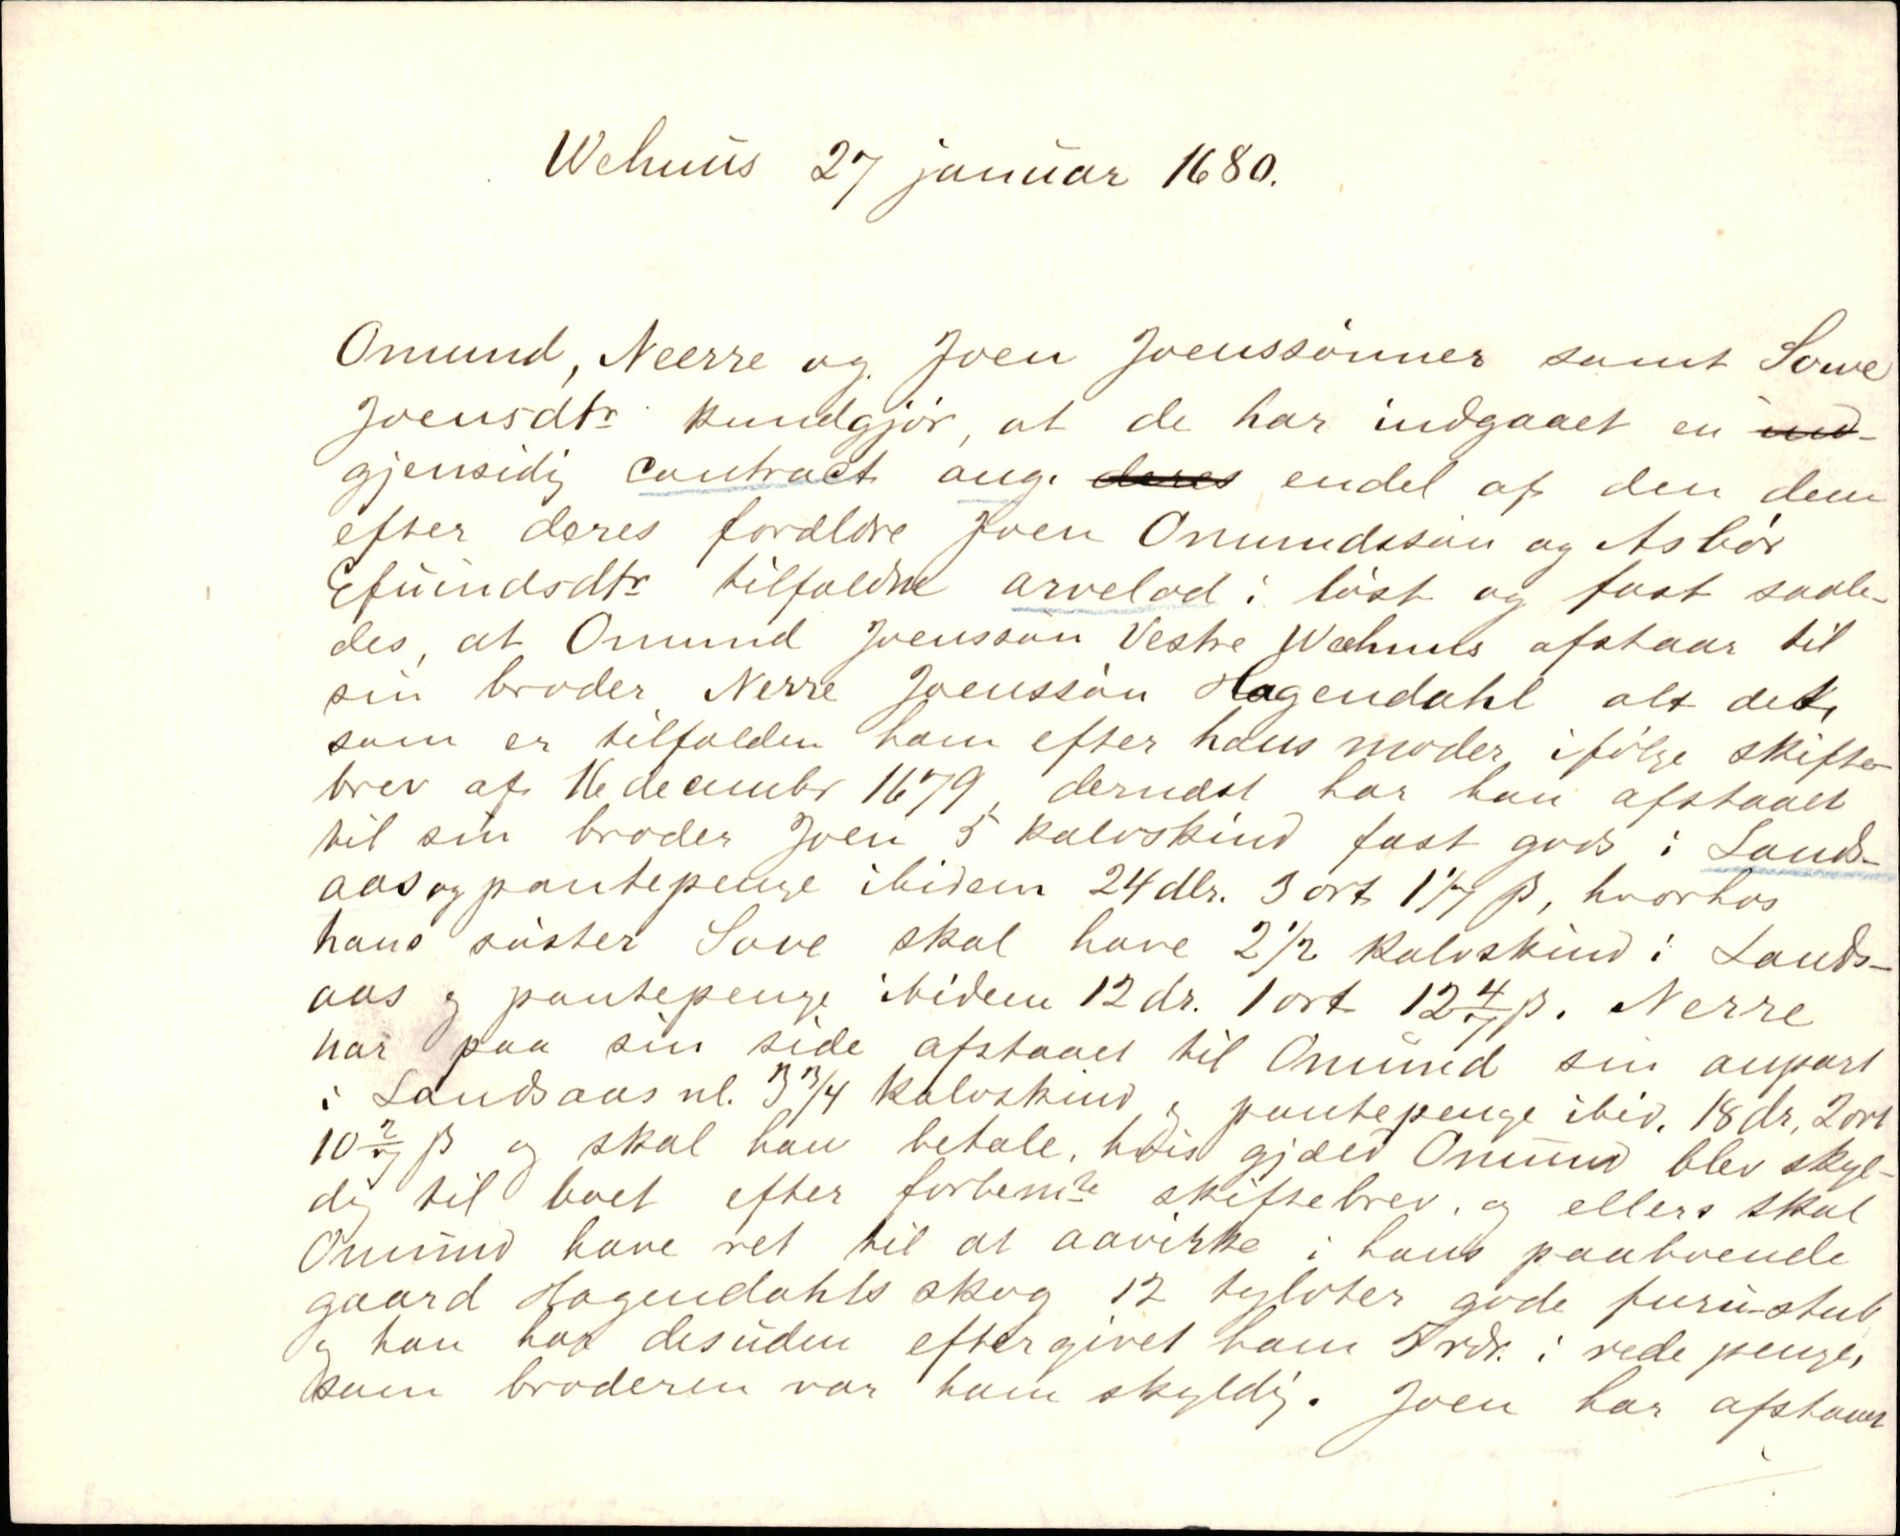 Wehuus 27 januar 1680.
Omund, Neerre og Joen Joenssönner samt Sowe
Joensdtr kundgjör, at de har indgaaet en ind-
gjensidig contract ang. deres endel af den dem
efter deres forældre Joen Omundssön og Asbör
Efuindsdtr tilfaldne arvelod i löst og fast saale-
des, at Omund Joenssön Vestre Wæhuus afstaar til
sin broder Nerre Joenssön Hagendahl alt det,
som er tilfalden ham efter hans moder ifölge skifte-
brev af 16 decembr 1679, dernæst har han afstaaet
til sin broder Joen 5 kalvskind fast gods i Lands-
aas og pantepenge ibidem 24 dlr. 3 ort 1 1/7 β, hvorhos
hans söster Sove skal have 2 1/2 kalvskind i Lands-
aas og pantepenge ibidem 12 dr. 1 ort 12 4/7 β. Nerre
har paa sin side afstaaet til Omund sin anpart
i Landsaas nl. 3 3/4 kalvskind og pantepenge ibid. 18 dr. 2 ort
10 2/7 β og skal han betale, hvis gjæld Omund blev skyl-
dig til boet efter forbemte skiftebrev, og ellers skal
Omund have ret til at aavirke i hans paaboende
gaard Hagendahls skog 12 tylvter gode furu-stub
og han har desuden eftergivet ham 5 rdr. i rede penge,
som broderen var ham skyldig. Joen har afstaaet